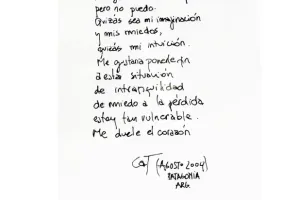 pero no puedo.
Quizás sea mi imaginación
y mis miedos,
quizás mi intuición.
Me gustaría ponerle fin
a esta situación
de intranquilidad
de miedo a la pérdida
estoy tan vulnerable.
Me duele el corazón
CAT (AGOSTO 2004)
PATAGONIA
ARG.